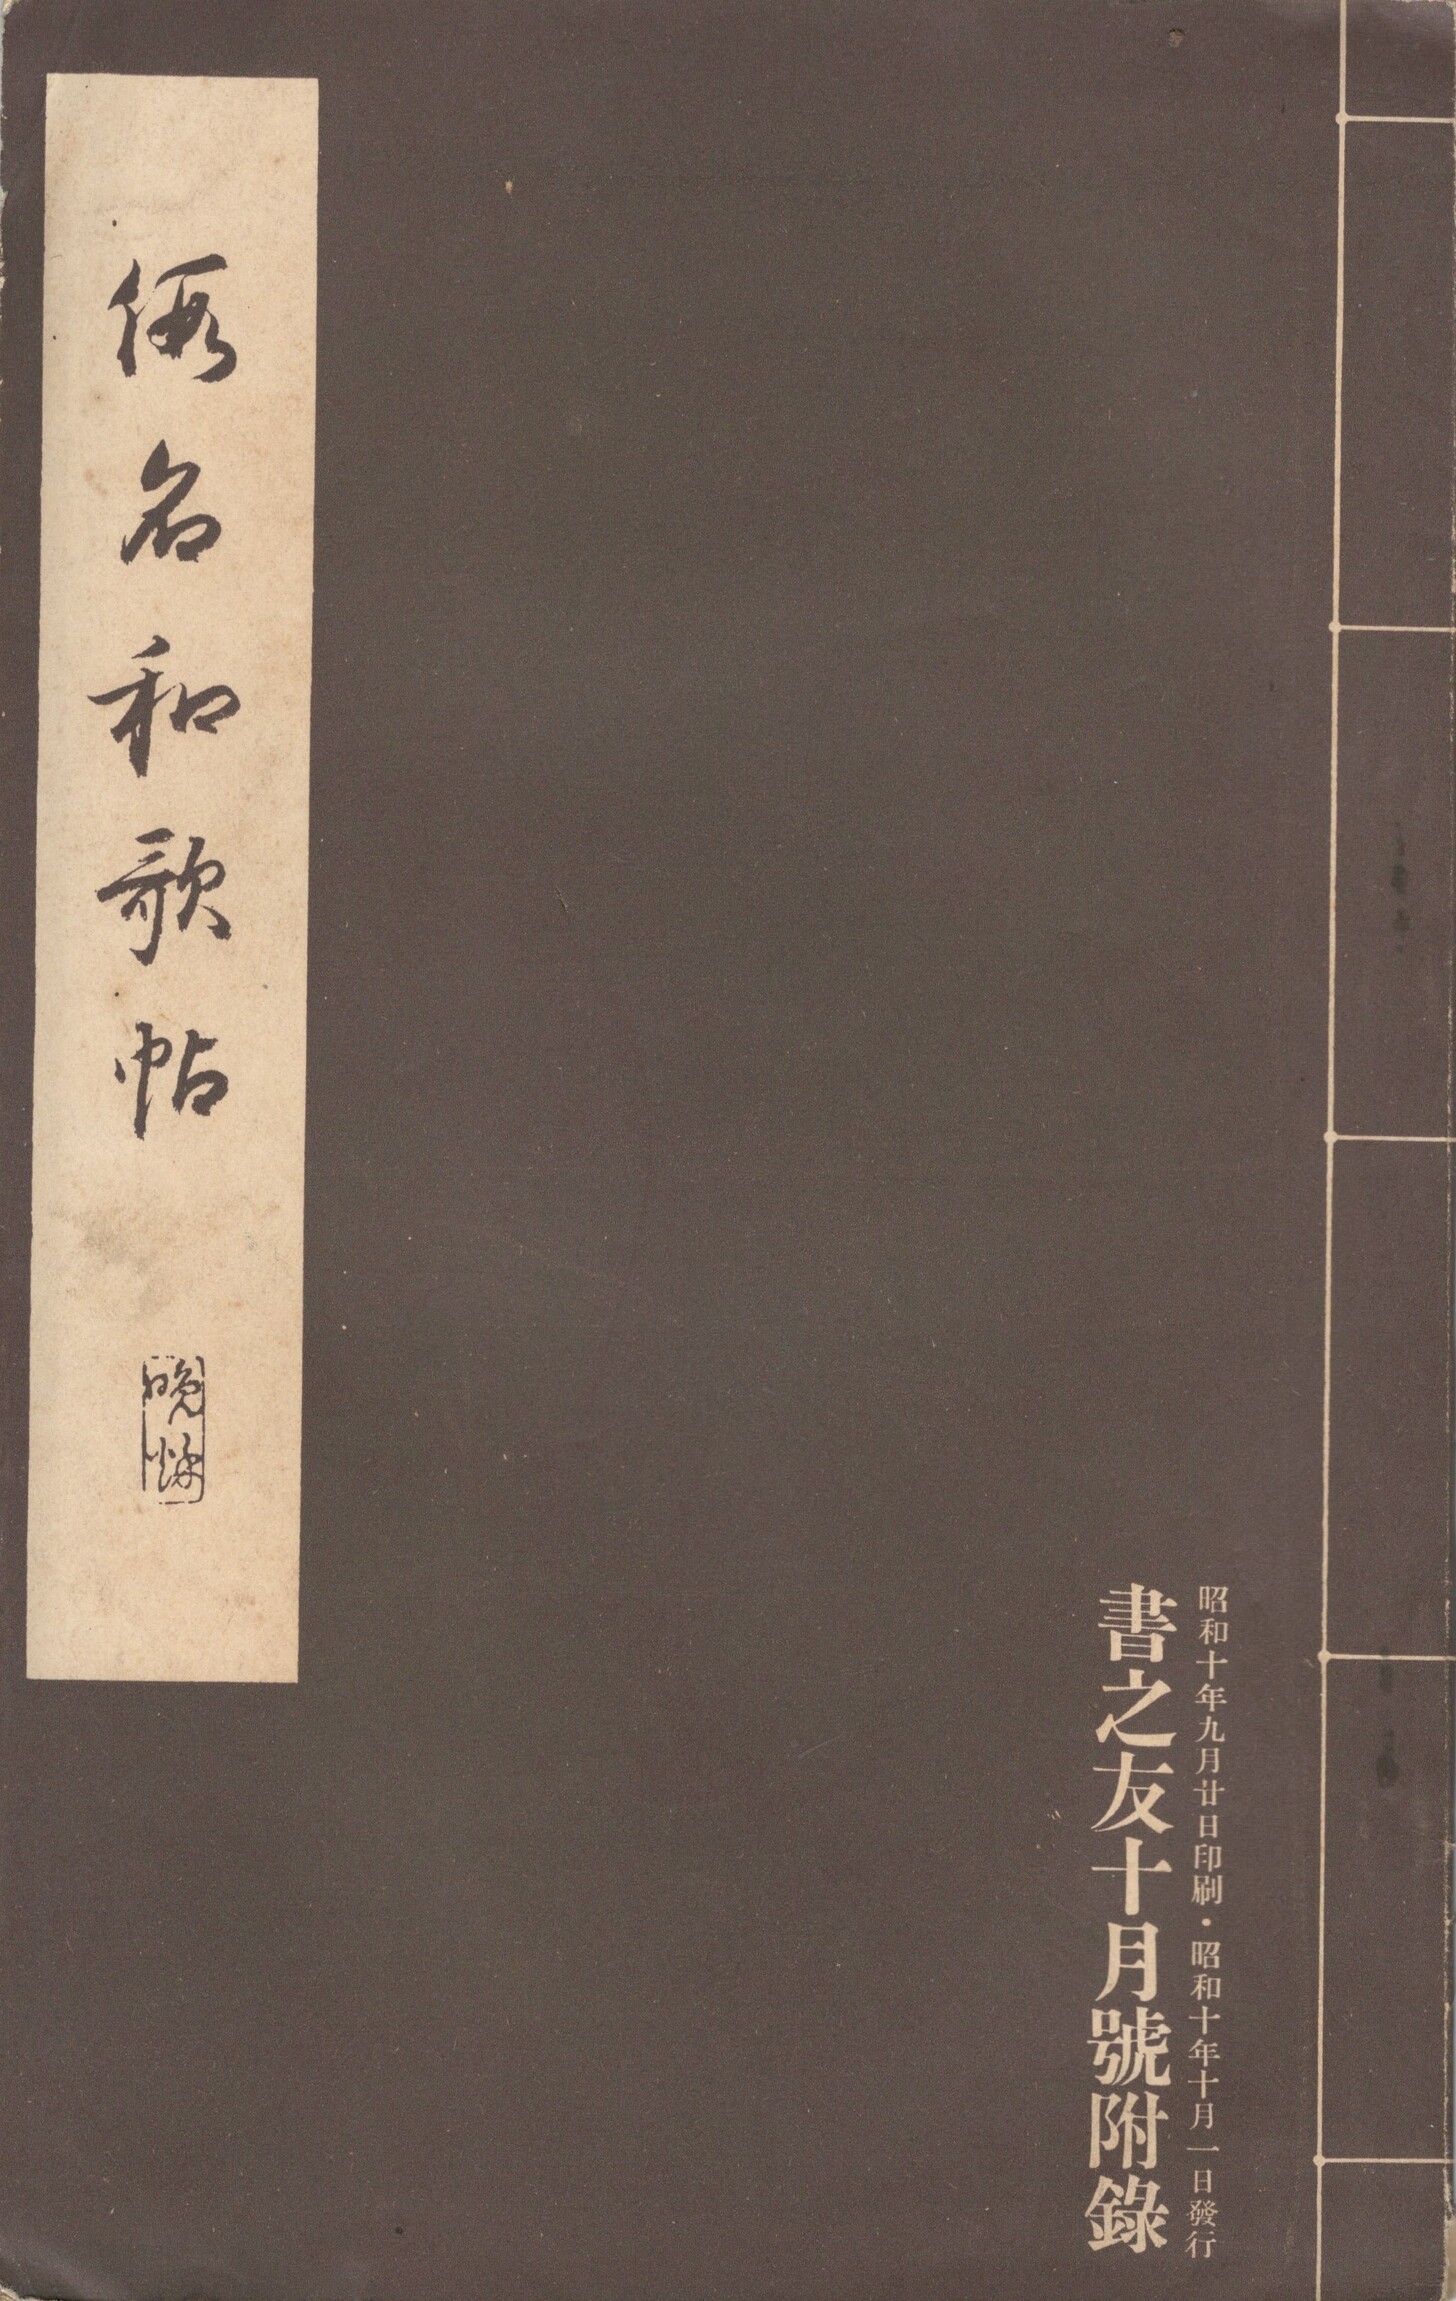 昭和十年九月廿日印刷・昭和十年十月一日發行
書之友十月號附錄
假名和歌帖